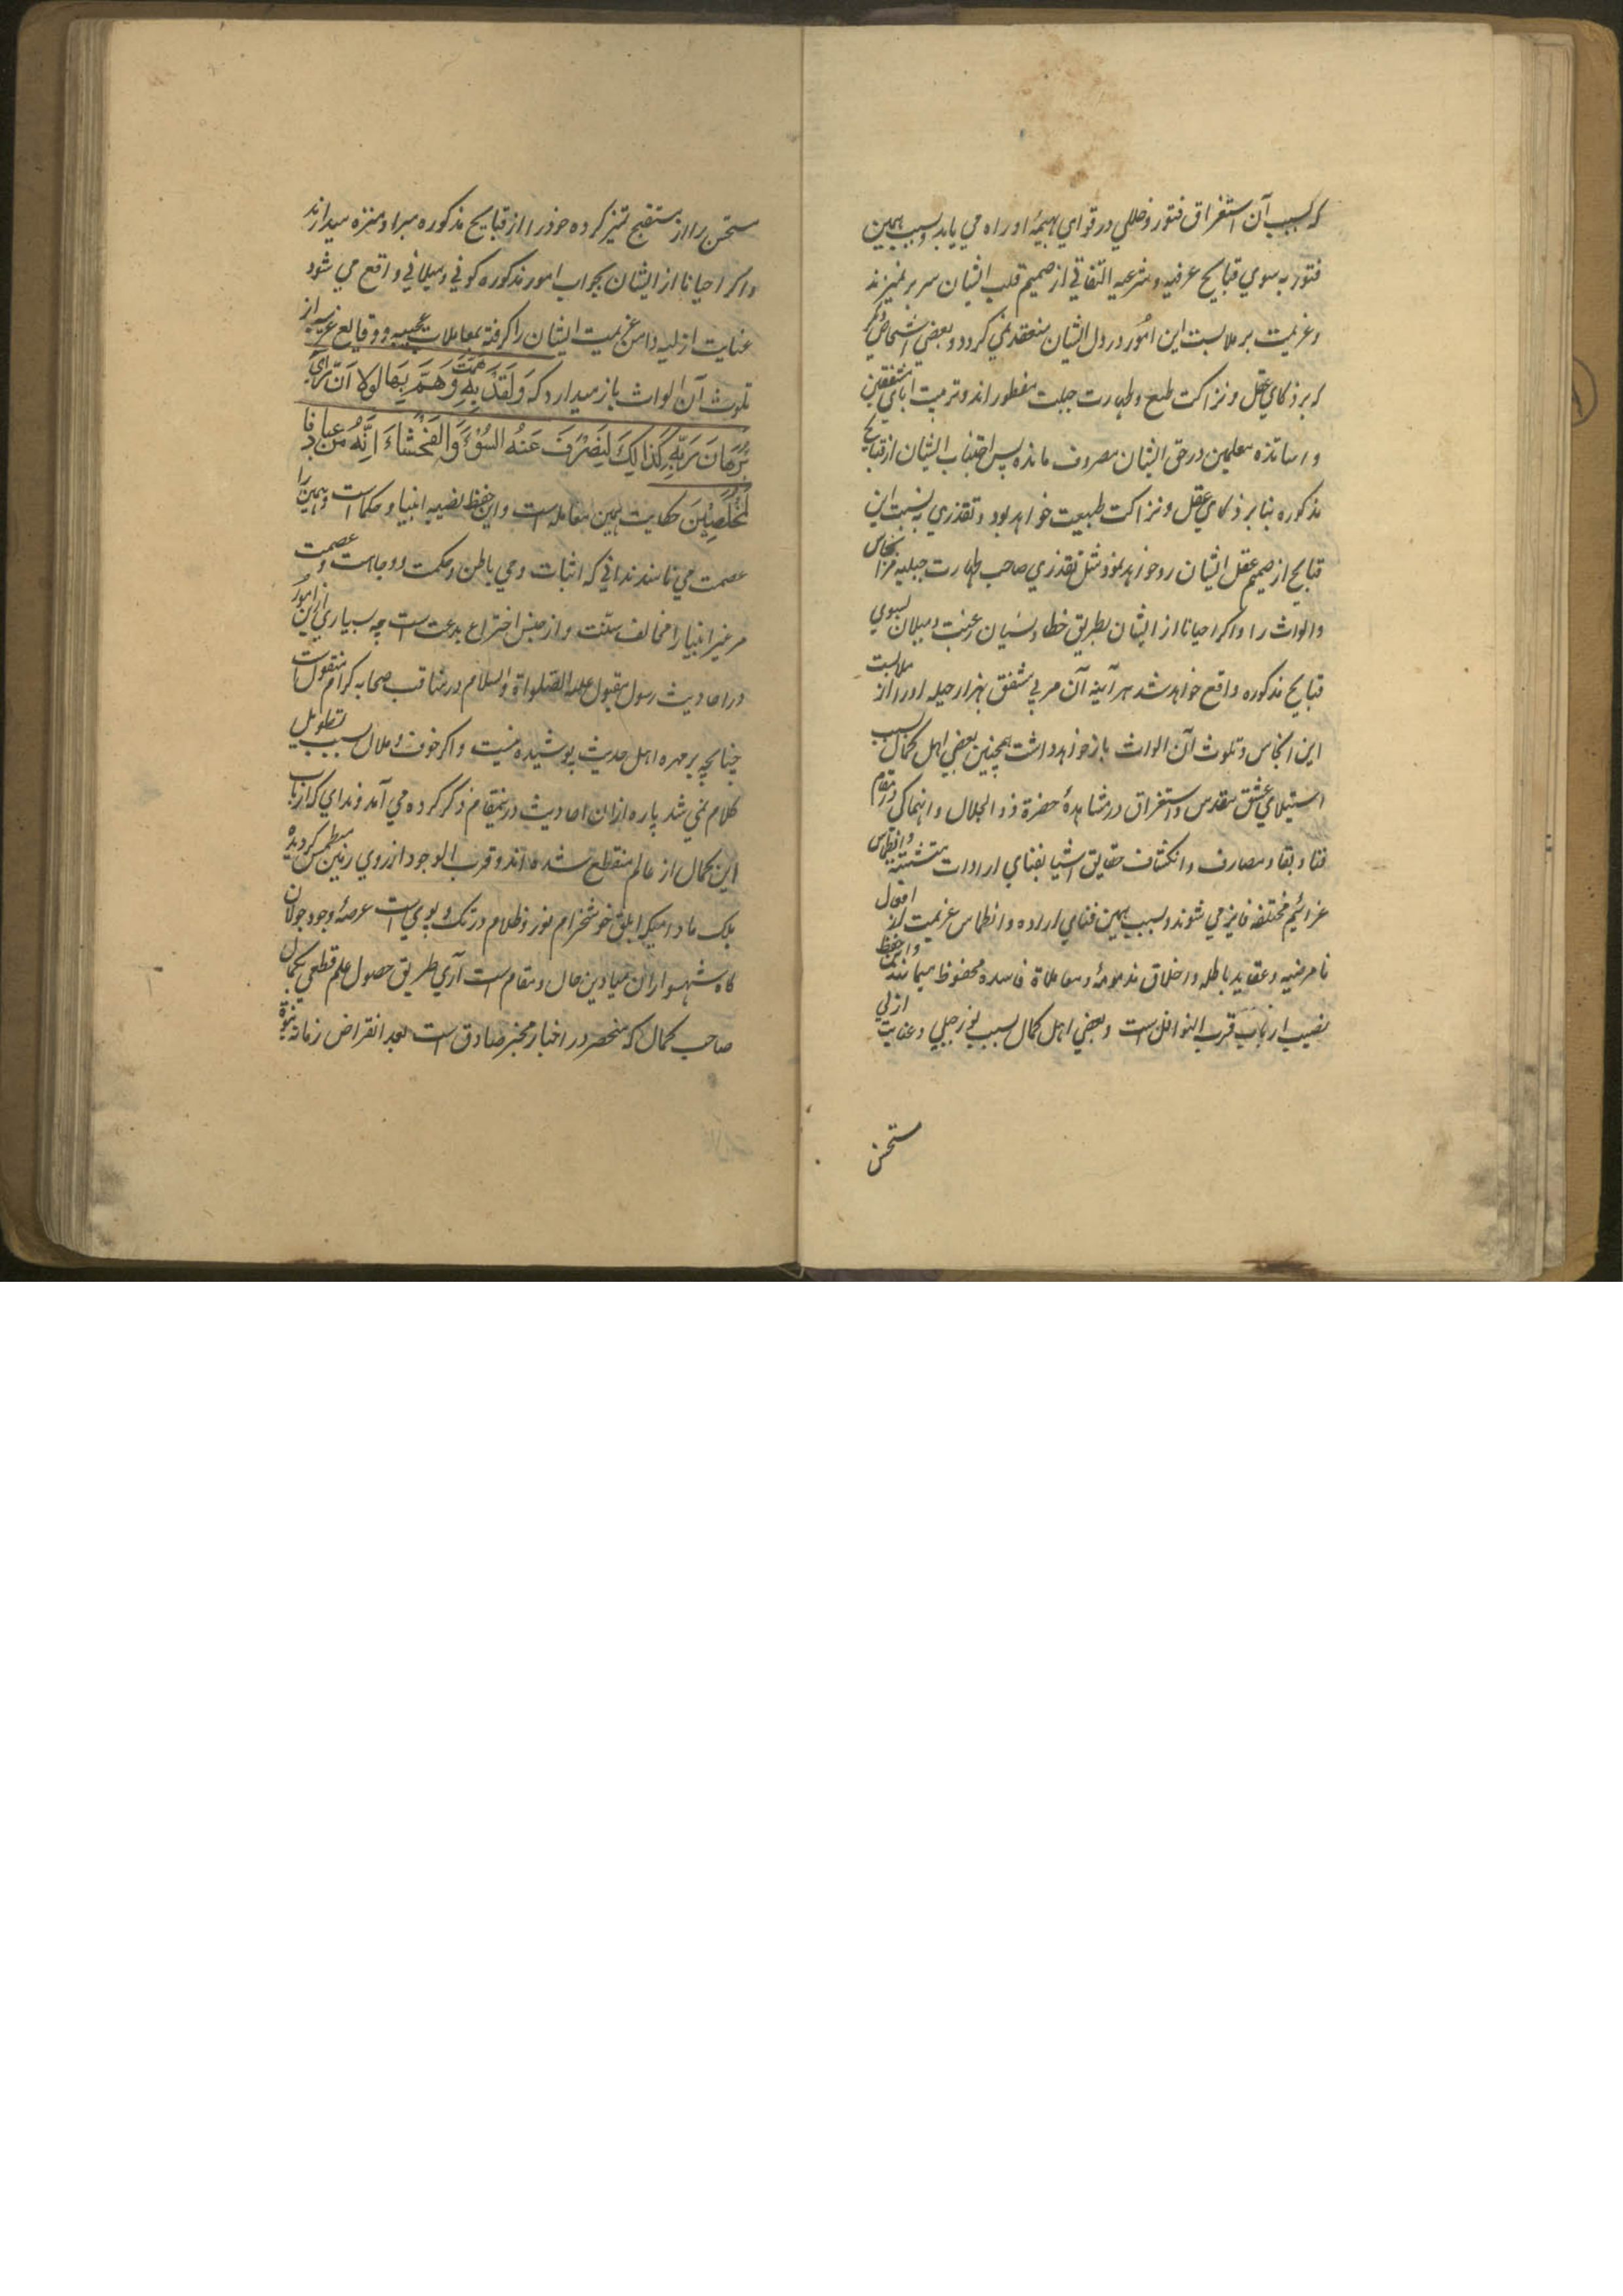 که بسبب آن استغراق فتور و خللي در قواي بهيميهٔ او راه مي يابد و بسبب همين
فتور به سوي قبايح عرفيه و شرعيه التفاتي از صميم قلب ايشان سر بر نميزند
و عزيمت بر ملابست اين امُور در دل ايشان منعقد نمي گردد و بعضي اشخاص ديگر
که بر ذکاي عقل و نزاکت طبع و طهارت جبلت مفطور اند و تربيت اباي مشفقين
و اساتذه معلمين در حق ايشان مصروف مانده پس اجتناب ايشان از قبايح
مذکوره بنابر ذکاي عقل و نزاکت طبيعت خواهد بود و تقذري به نسبت اين
قبايح از صميم عقل ايشان رو خواهد نمود مثل تقذري صاحب طهارت جبليه مر انجاس
و الواث را و اگر احيانا از ايشان بطريق خطا و نسيان رغبت و ميلان بسوي
قبايح مذکوره واقع خواهد شد هر آينه آن مربي مشفق بهزار حيله او را از ملابست
اين انجاس و تلوث آن الواث باز خواهد داشت همچنين بعضي اهل کمال بسبب
استيلاي عشق مقدس و استغراق در مشاهدهٔ حضرة ذو الجلال و انهماک در مقام
فنا و بقا و مصارف و انکشاف حقايق اشيا بفناي ارادات متشتته و انطماس
عزائيم مختلفه فايز مي شوند و بسبب همين فناي اراده و انطماس عزيمت از افعال
نامرضيه و عقايد باطله و اخلاق مذمومهٔ و معاملاة فاسده محفوظ ميمانند و اين حفظ
نصيب ارباب قرب النوافل است و بعضي اهل کمال بسبب نور جبلي و عنايت ازلي
مستحسن
مستحسن را از مستقبح تميز کرده خود را از قبايح مذکوره مبرا و منزه ميدارند
و اگر احيانا از ايشان بجواب امور مذکوره کوني و ميلاني واقع مي شود
عنايت ازليه دامن عزيمت ايشان را گرفته بمعاملات عجيبه و وقايع غريبه از
تلوث آن الواث باز ميدارد که وَلَقَدْ هَمَّتْ بِهِ وَهَمَّ بِهَا لولا اَنْ رَّاى
بُرْهَانَ رَبِّهِ كَذَالِكَ لِنَصْرِفَ عَنْهُ السُّوْءَ وَالْفَحْشَاءَ اِنَّهُ مِنْ عِبَادِنَا
الْمُخْلَصِيْنَ حکايت همين معامله است و اين حفظ نصيبه انبيا و حکما است و همين را
عصمت مي نامند نداني که اثبات وحي باطن و حکمت و وجاهت و عصمت
مر غير انبيا را مخالف سنّت و از جنس اختراع بدعت است چه بسياري ازين امور
در احاديث رسول مقبول عليه الصّلواة والسلام در مناقب صحابه کرام منقول است
چنانچه بر مهره اهل حديث پوشيده نيست و اگر خوف ملال بسبب تطويل
کلام نمي شد پاره ازان احاديث درينمقام ذکر کرده مي آمد و نداي که ارباب
اين کمال از عالم منقطع شده اند و قرب الوجود از روي زمين منطمس گرديده
بلک مادامیکه ابلق خوشخرام نور و ظلام در تک و پوي است عرصهٔ وجود جولان
گاه شهسواران ميادين حال و مقام است آري طريق حصول علم قطعي بکمال
صاحب کمال که منحصر در اخبار مخبر صادق است بعد انقراض زمانه نبوة